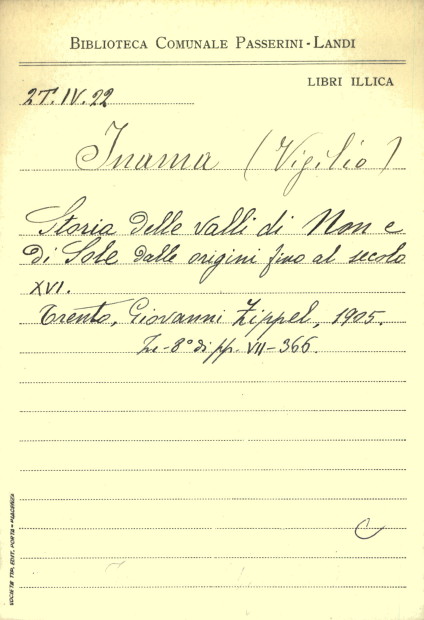 BIBLIOTECA COMUNALE PASSERINI-LANDI
LIBRI ILLICA
2T.IV.22
Inama (Vigilio)
Storia delle valli di Non e
di Sole dalle origini fino al secolo
XVI.
Trento, Giovanni Zippel, 1905.
In-8° di pp. VII-366.
C
SOCIETÀ TIP. EDIT. PORTA - PIACENZA